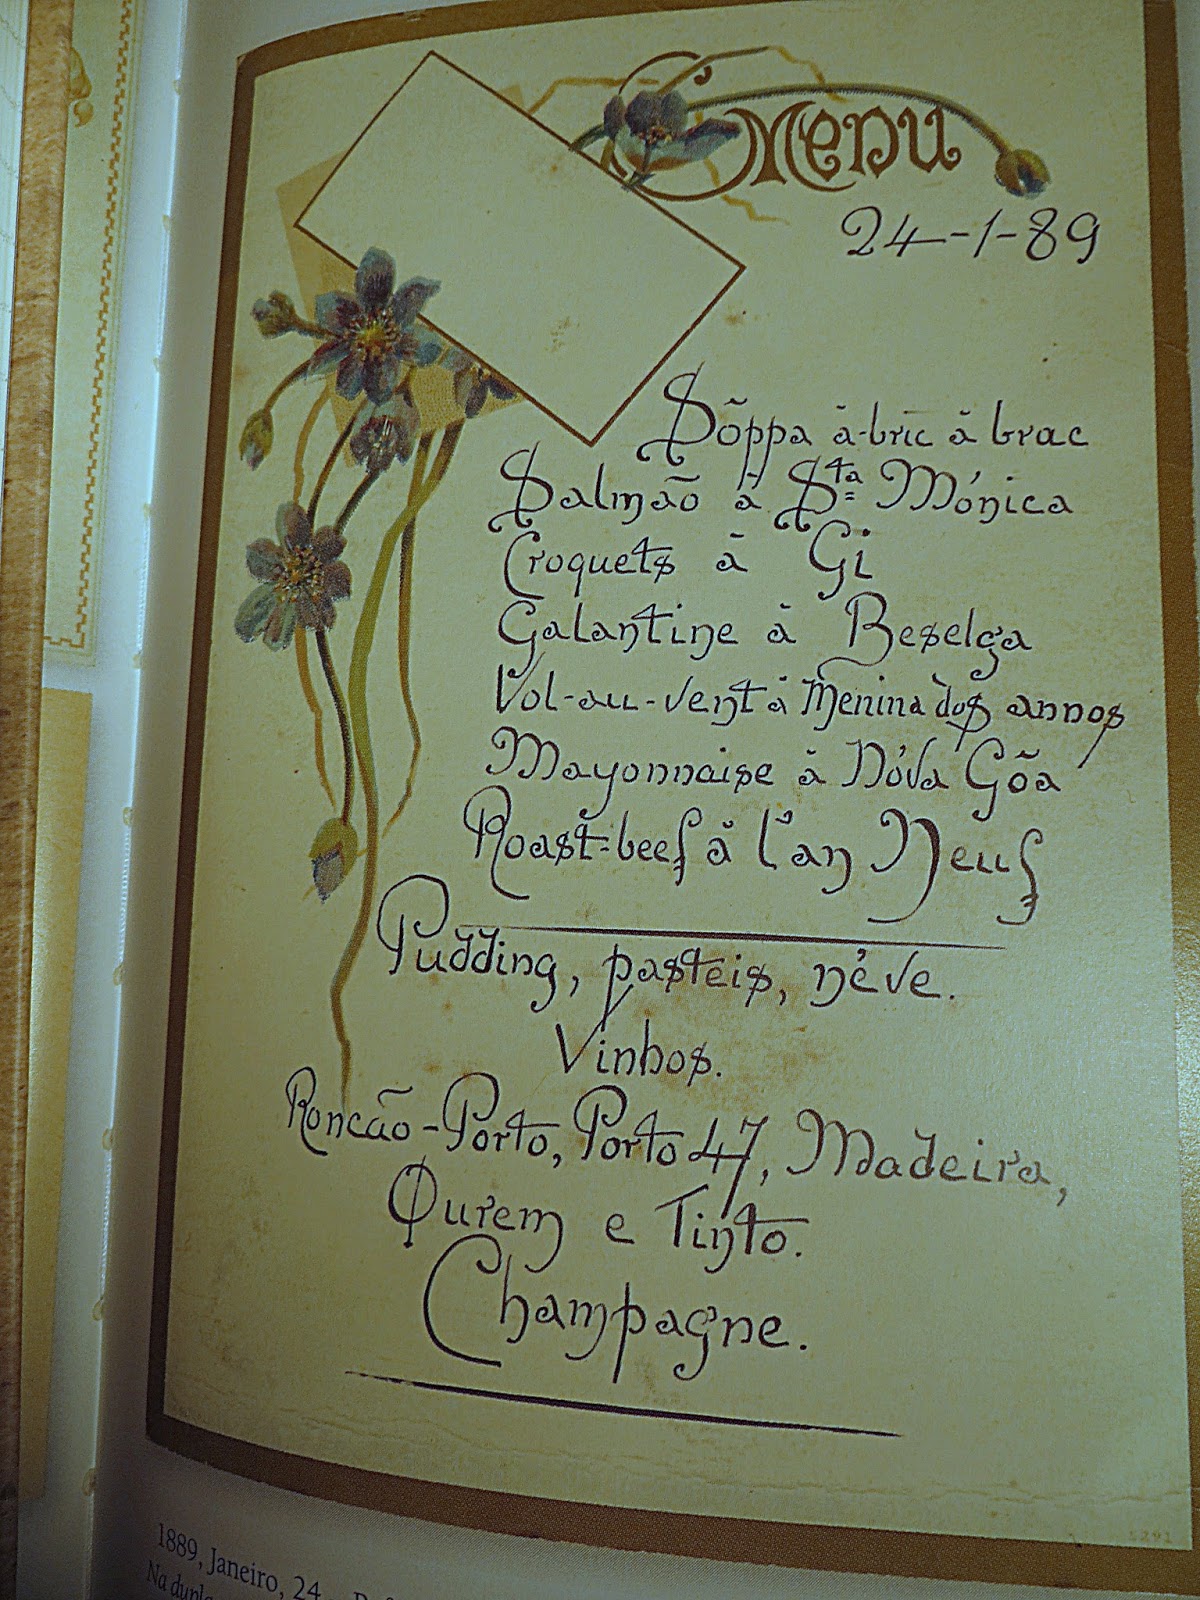 Menu
24-1-89
Sõppa á-bric á brac
Salmão á Sta Mónica
Croquets á Gi
Galantine á Beselga
Vol-au-vent á Menina dos annos
Mayonnaise á Nóva Gõa
Roast-beef á l'an Neuf
Pudding, pasteis, néve.
Vinhos.
Roncão-Porto, Porto 47, Madeira,
Ourem e Tinto.
Champagne.
5291
1889, Janeiro, 24
Na dupla